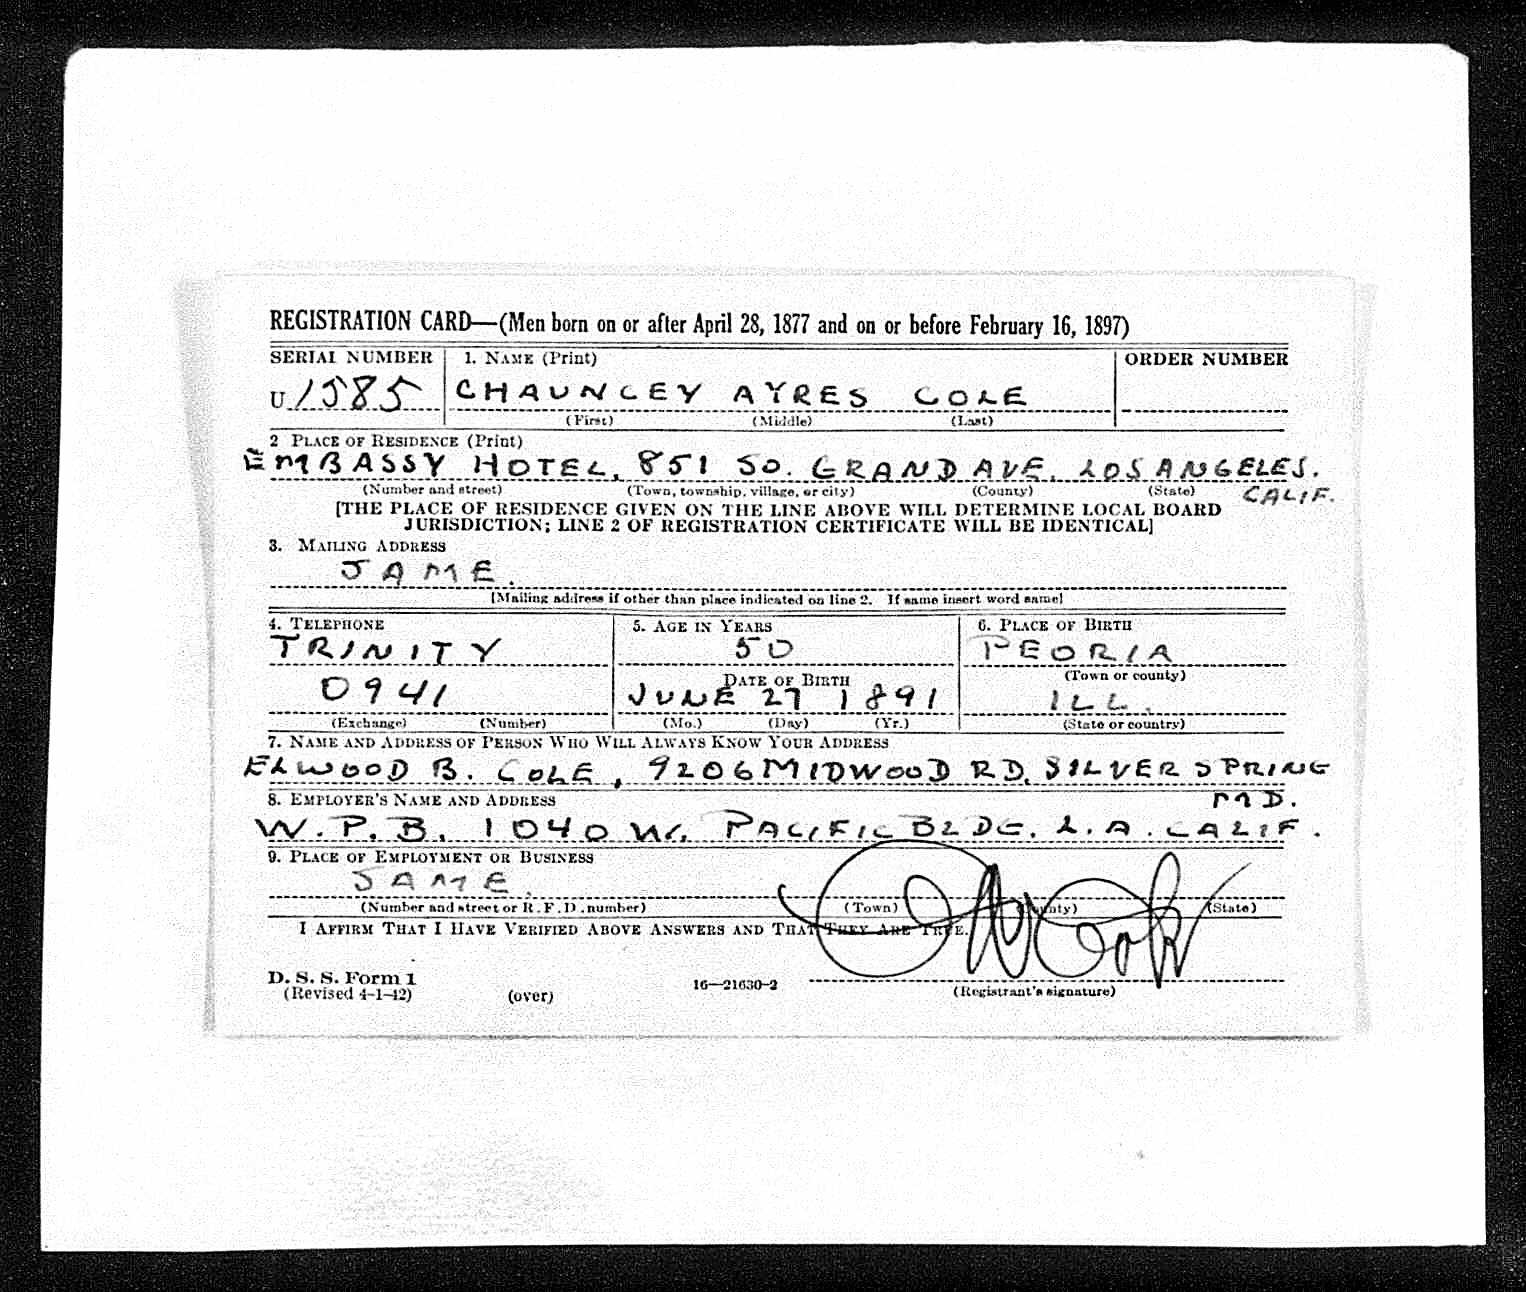 REGISTRATION CARD—(Men born on or after April 28, 1877 and on or before February 16, 1897)
SERIAL NUMBER 1. NAME (Print) ORDER NUMBER
U 1585 CHAUNCEY AYRES COLE
(First) (Middle) (Last)
2 PLACE OF RESIDENCE (Print)
EMBASSY HOTEL, 851 SO. GRAND AVE. LOS ANGELES.
(Number and street) (Town, township, village, or city) (County) (State) CALIF.
[THE PLACE OF RESIDENCE GIVEN ON THE LINE ABOVE WILL DETERMINE LOCAL BOARD
JURISDICTION; LINE 2 OF REGISTRATION CERTIFICATE WILL BE IDENTICAL]
3. MAILING ADDRESS
SAME.
[Mailing address if other than place indicated on line 2. If same insert word same]
4. TELEPHONE 5. AGE IN YEARS 6. PLACE OF BIRTH
TRINITY 50 PEORIA
DATE OF BIRTH (Town or county)
0941 JUNE 27 1891 ILL.
(Exchange) (Number) (Mo.) (Day) (Yr.) (State or country)
7. NAME AND ADDRESS OF PERSON WHO WILL ALWAYS KNOW YOUR ADDRESS
ELWOOD B. COLE, 9206 MIDWOOD RD. SILVER SPRING
MD.
8. EMPLOYER'S NAME AND ADDRESS
W.P.B. 1040 W. PACIFIC BLDG. L.A. CALIF.
9. PLACE OF EMPLOYMENT OR BUSINESS
SAME.
(Number and street or R.F.D. number) (Town) (County) (State)
I AFFIRM THAT I HAVE VERIFIED ABOVE ANSWERS AND THAT THEY ARE TRUE.
D. S. S. Form 1
(Revised 4-1-42) (over) 16—21630-2 (Registrant's signature)